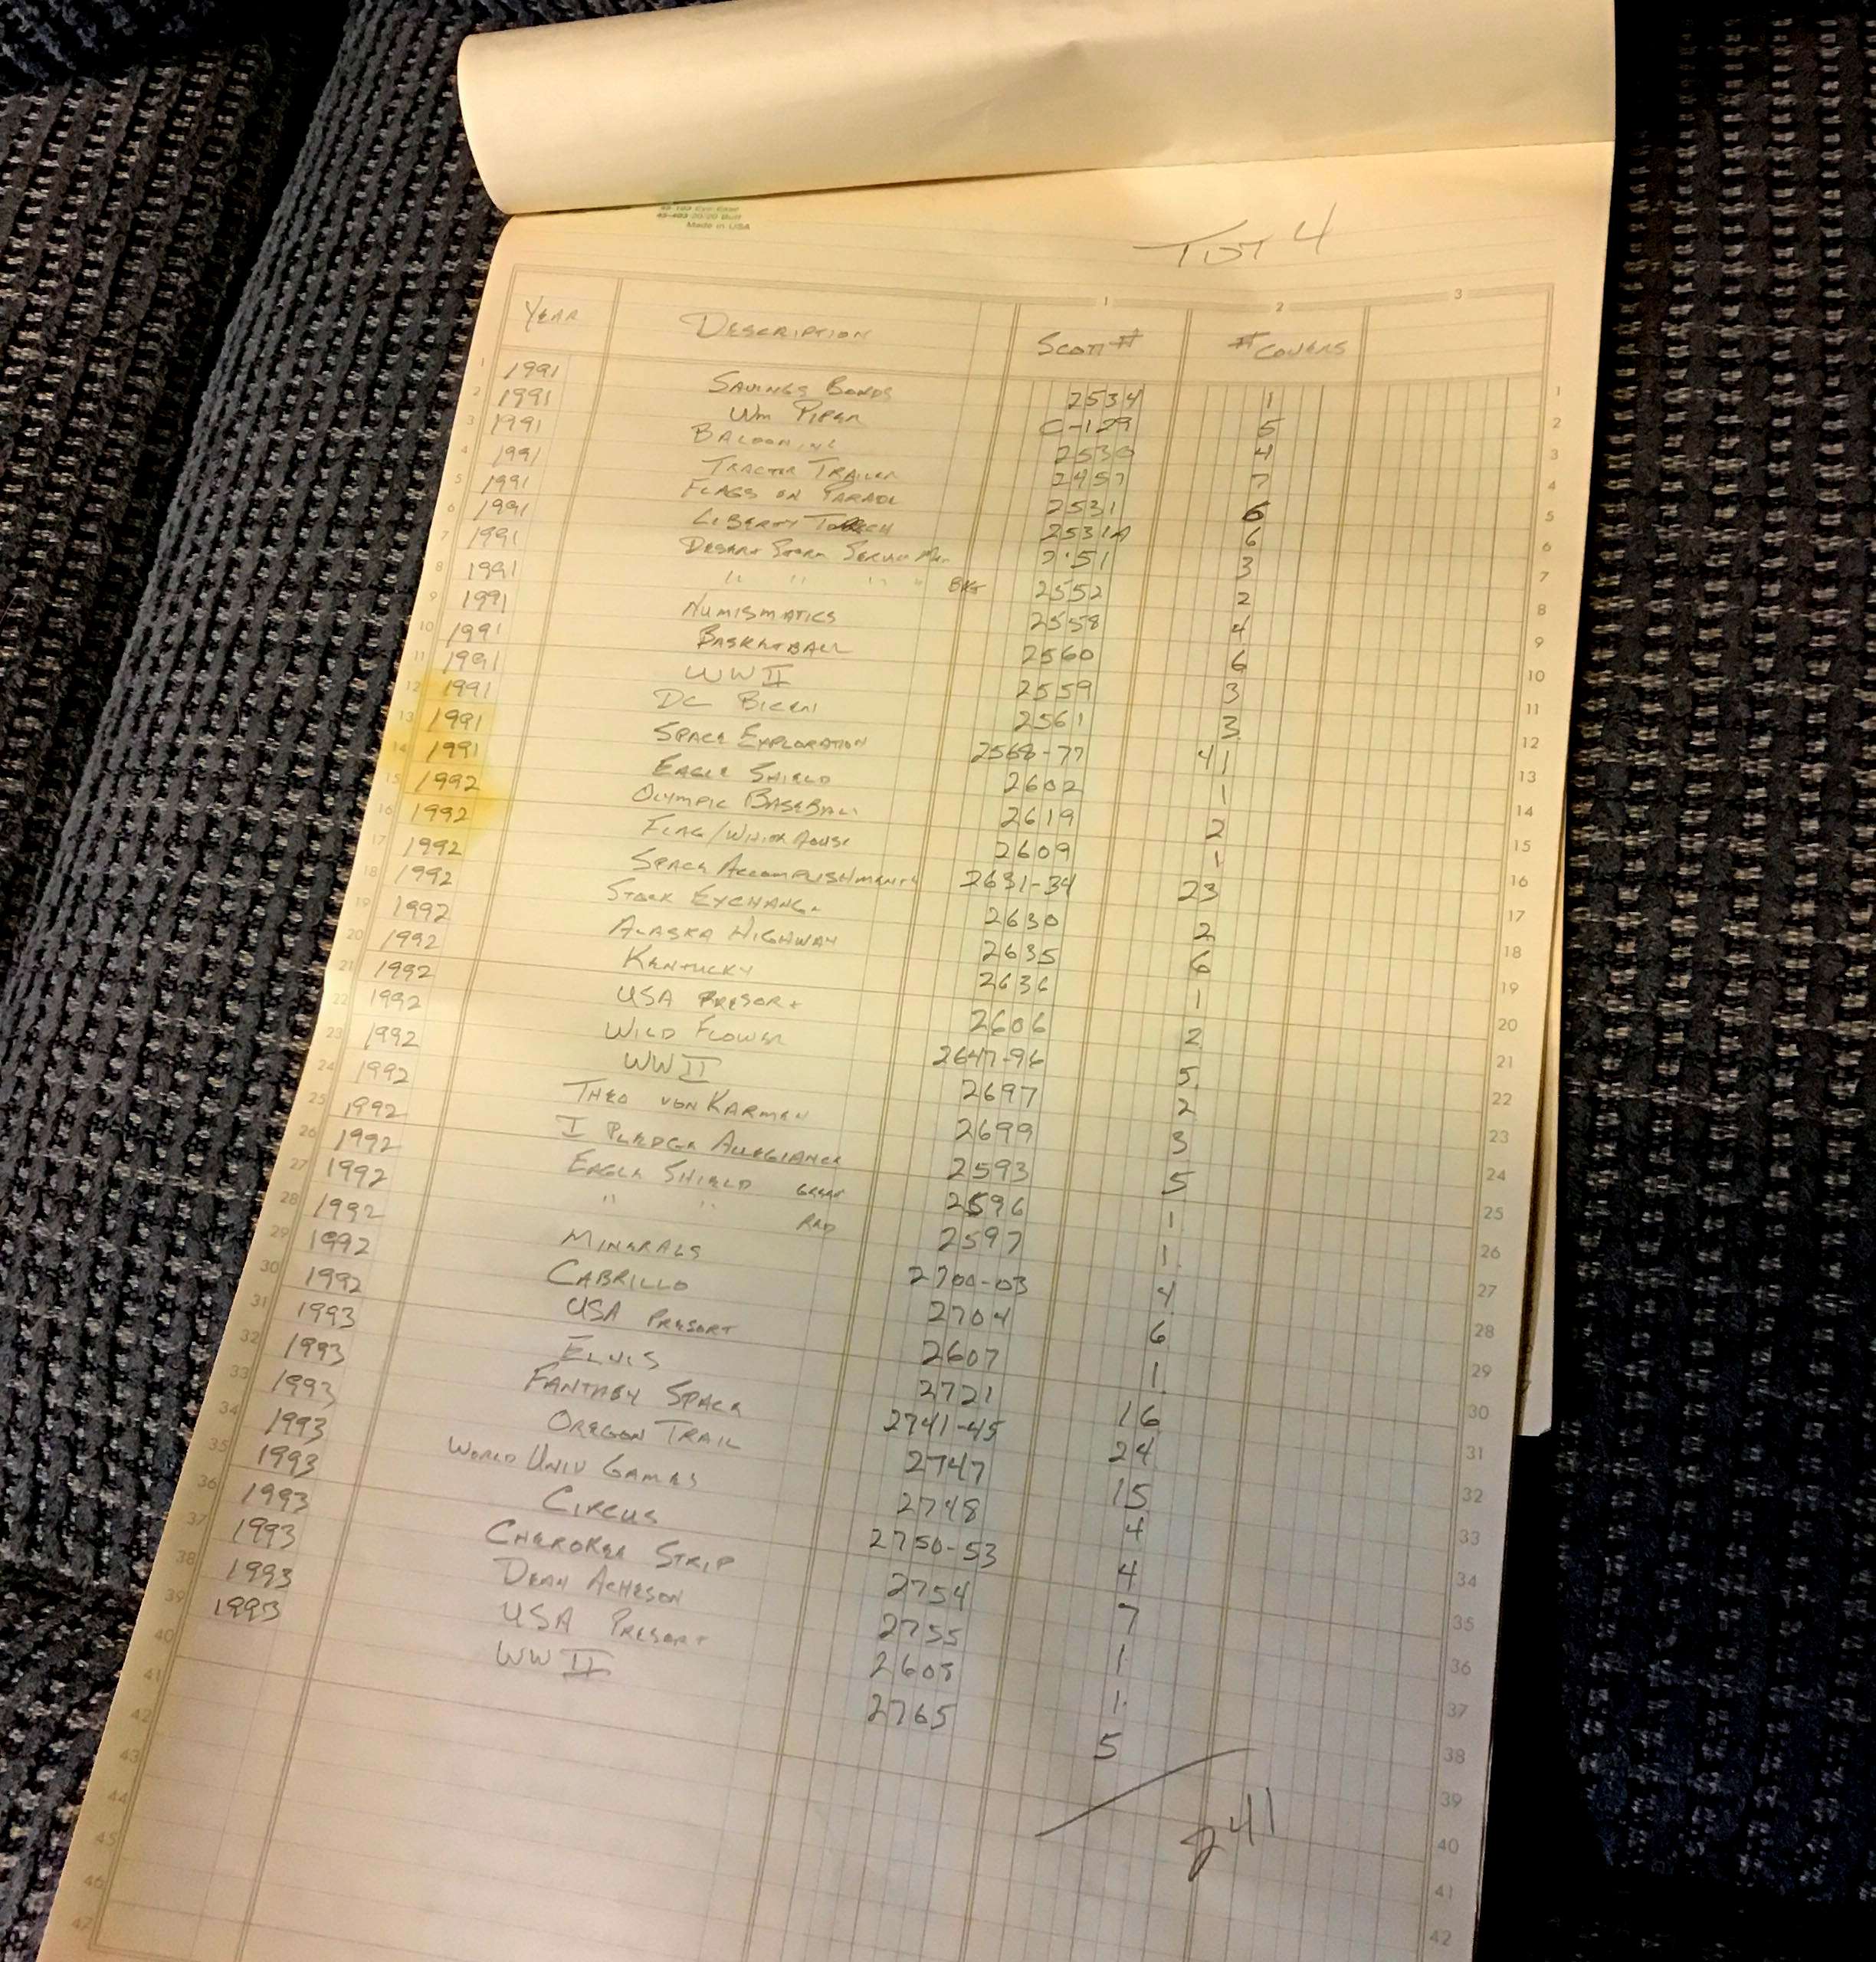 45-103 Eye-Ease
45-403 20/20 Buff
Made in USA
TOT 4
1 2 3
YEAR DESCRIPTION SCOTT # # COVERS
1 1991 SAVINGS BONDS 2534 1 1
2 1991 WM PIPER C-129 5 2
3 1991 BALOONING 2530 4 3
4 1991 TRACTOR TRAILER 2457 7 4
5 1991 FLAGS ON PARADE 2531 6 5
6 1991 LIBERTY TORCH 2531A 6 6
7 1991 DESERT STORM SERVICE MEN 2551 3 7
8 1991 " " " " BKT 2552 2 8
9 1991 NUMISMATICS 2558 4 9
10 1991 BASKETBALL 2560 6 10
11 1991 WW II 2559 3 11
12 1991 DC BICEN 2561 3 12
13 1991 SPACE EXPLORATION 2568-77 41 13
14 1991 EAGLE SHIELD 2602 1 14
15 1992 OLYMPIC BASEBALL 2619 2 15
16 1992 FLAG/WHITE HOUSE 2609 1 16
17 1992 SPACE ACCOMPLISHMENTS 2631-34 23 17
18 1992 STOCK EXCHANGE 2630 2 18
19 1992 ALASKA HIGHWAY 2635 6 19
20 1992 KENTUCKY 2636 1 20
21 1992 USA PRESORT 2606 2 21
22 1992 WILD FLOWER 2647-96 5 22
23 1992 WW II 2697 2 23
24 1992 THEO VON KARMEN 2699 3 24
25 1992 I PLEDGE ALLEGIANCE 2593 5 25
26 1992 EAGLE SHIELD GREEN 2596 1 26
27 1992 " " RED 2597 1 27
28 1992 MINERALS 2700-03 4 28
29 1992 CABRILLO 2704 6 29
30 1992 USA PRESORT 2607 1 30
31 1993 ELVIS 2721 16 31
32 1993 FANTASY SPACE 2741-45 24 32
33 1993 OREGON TRAIL 2747 15 33
34 1993 WORLD UNIV GAMES 2748 4 34
35 1993 CIRCUS 2750-53 4 35
36 1993 CHEROKEE STRIP 2754 7 36
37 1993 DEAN ACHESON 2755 1 37
38 1993 USA PRESORT 2608 1 38
39 1993 WW II 2765 5 39
40 241 40
41 41
42 42
43
44
45
46
47